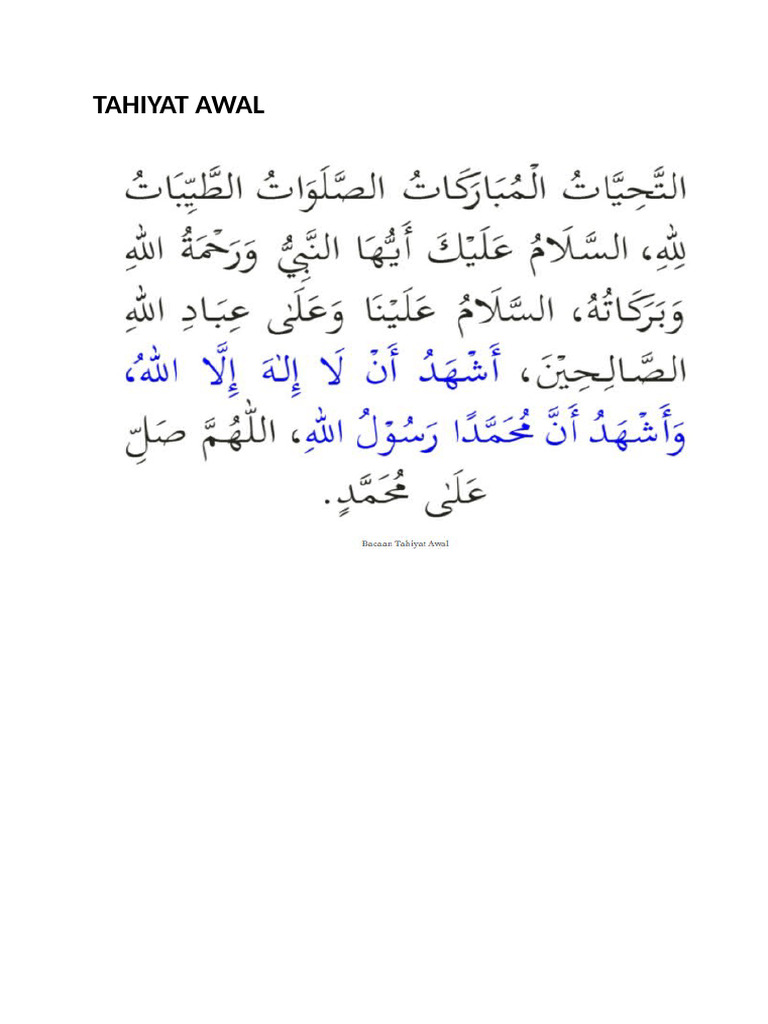 TAHIYAT AWAL
التَّحِيَّاتُ الْمُبَارَكَاتُ الصَّلَوَاتُ الطَّيِّبَاتُ
لِلهِ، السَّلَامُ عَلَيْكَ أَيُّهَا النَّبِيُّ وَرَحْمَةُ اللهِ
وَبَرَكَاتُهُ، السَّلَامُ عَلَيْنَا وَعَلَى عِبَادِ اللهِ
الصَّالِحِيْنَ، أَشْهَدُ أَنْ لَا إِلٰهَ إِلَّا اللهُ،
وَأَشْهَدُ أَنَّ مُحَمَّدًا رَسُوْلُ اللهِ، اللّٰهُمَّ صَلِّ
عَلَى مُحَمَّدٍ.
Bacaan Tahiyat Awal